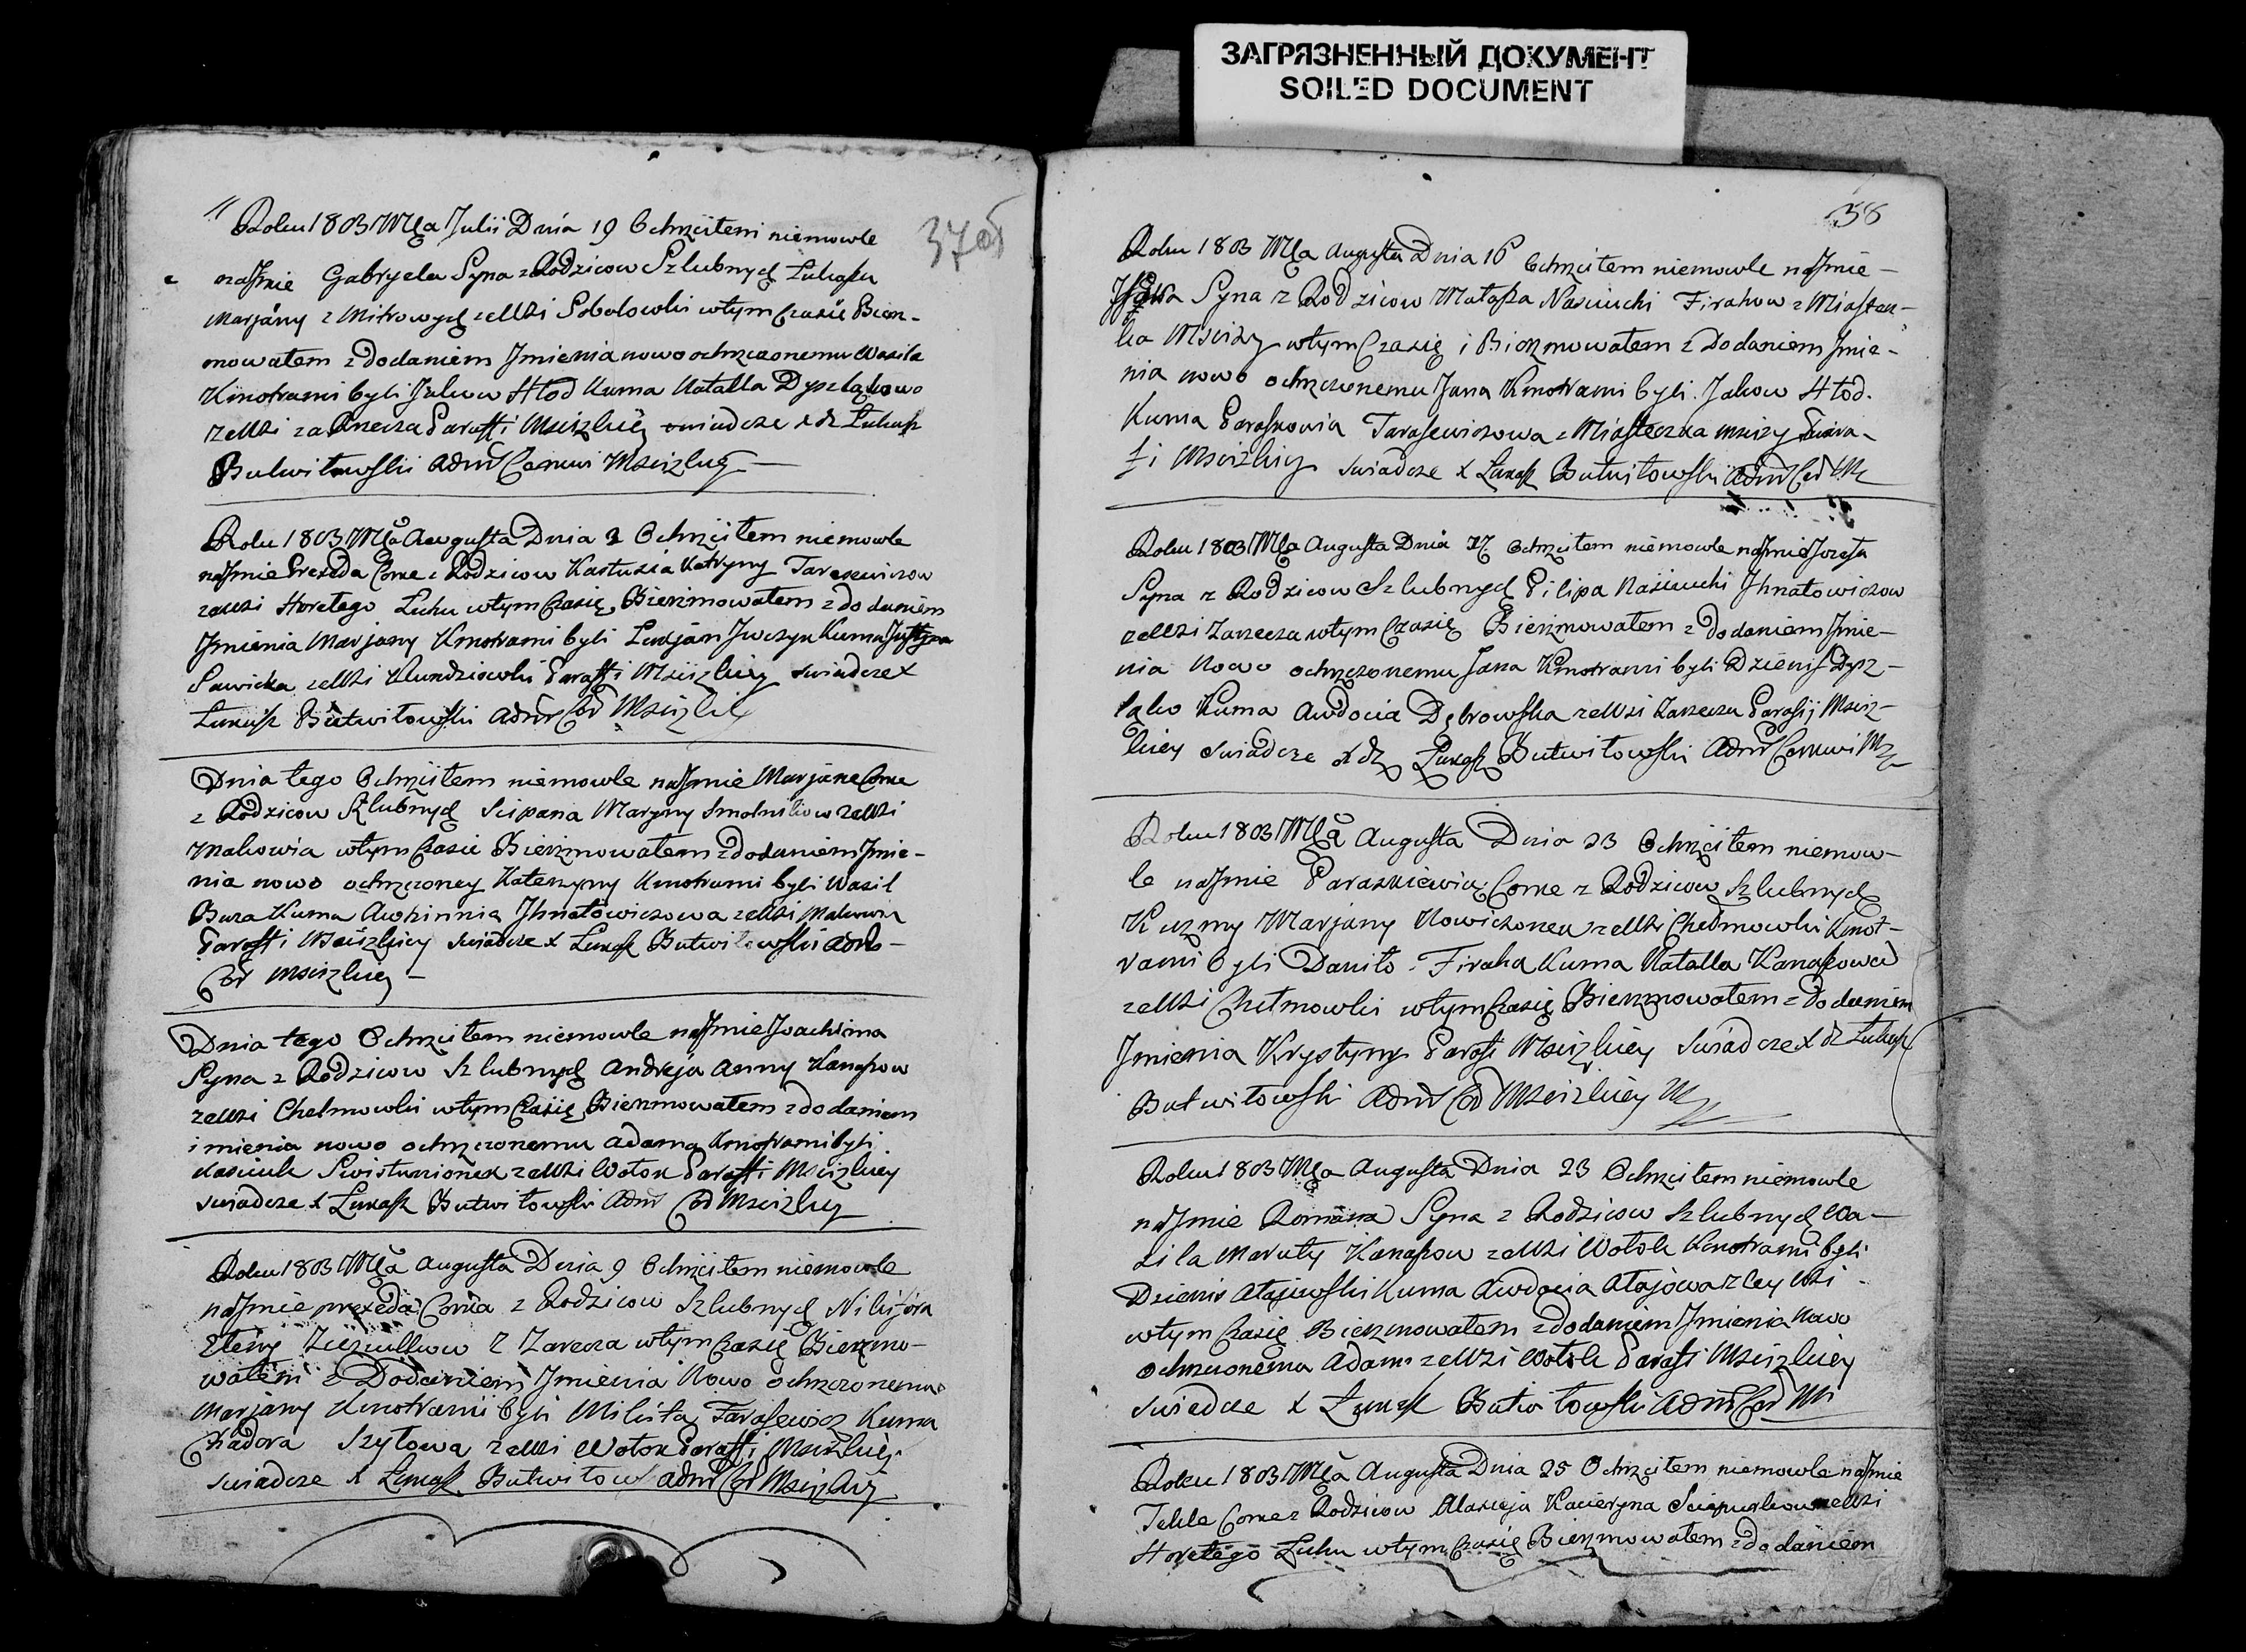 ЗАГРЯЗНЕННЫЙ ДОКУМЕНТ
SOILED DOCUMENT
37об
Roku 1803 Mca Julii Dnia 19 Ochrzciłem niemowle
na Jmie Gabryela Syna z Rodzicow Szlubnych Łukasza
Marjany z Mitrowych ze Wsi Sobolowki w tym Czasie Bierz-
mowałem z Dodaniem Jmienia nowo ochrzczonemu Wasila
Kmotrami byli Jakow Hłod Kuma Natalla
ze Wsi Zarzecza Parafii Mscizkiey swiadcze X Dz Łukasz
Butwiłowski Admr Cerkwi Mscizkiey
Roku 1803 Mca Augusta Dnia 2 Ochrzciłem niemowle
na Jmie Prexeda Corke z Rodzicow Kastusia Katryny Tarasewiczow
ze Wsi Horełego Luhu w tym Czasie Bierzmowałem z dodaniem
Jmienia Marjany Kmotrami byli Lukjan Kuma Justyna
Sawicka ze Wsi Parafii Mscizkiey swiadcze X
Łukasz Butwiłowski Admr Cer Mscizkiey
Dnia tego Ochrzciłem niemowle na Jmie Marjane Corke
z Rodzicow Szlubnych Scipana Maryny Smolnikow ze Wsi
Makowia w tym Czasie Bierzmowałem z Dodaniem Jmie-
nia nowo ochrzczoney Katerzyny Kmotrami byli Wasil
Bura Kuma Awhinnia Jhnatowiczowa ze Wsi Makowia
Parafii Mscizkiey swiadcze X Łukasz Butwiłowski Admr
Cer Mscizkiey
Dnia tego Ochrzciłem niemowle na Jmie Joachima
Syna z Rodzicow Szlubnych Andreja Anny Kanaszow
ze Wsi Chełmowki w tym Czasie Bierzmowałem z dodaniem
imienia nowo ochrzczonemu Adama Kmotrami byli
ze Wsi Wołok Parafii Mscizkiey
swiadcze X Łukasz Butwiłowski Admr Cer Mscizkiey
Roku 1803 Mca Augusta Dnia 9 Ochrzciłem niemowle
na Jmie prexeda Corka z Rodzicow Szlubnych Nikifora
Eleny z Zarecza w tym Czasie Bierzmo-
wałem z Dodaniem Jmienia Nowo ochrzczonemu
Marjany Kmotrami byli Mikita Tarasewicz Kuma
Chadora Szyłowa ze Wsi Wołok Parafii Mscizkiey
swiadcze X Łukasz Butwiłow Admr Cer Mscizkiey
38
Roku 1803 Mca Augusta Dnia 16 Ochrzciłem niemowle na Jmie
Syna z Rodzicow Matasza Nasciuchi Firahow z Miastecz-
ka Mscizy w tym Czasie i Bierzmowałem z Dodaniem Jmie-
nia nowo ochrzczonemu Jana Kmotrami byli Jakow Hłod
Kuma Paraskowia Tarasewiczowa z Miasteczka Mscizy Para-
fii Mscizkiey swiadcze X Łukasz Butwiłowski Admr Cer M
Roku 1803 Mca Augusta Dnia 17 Ochrzciłem niemowle na Jmie Jozefa
Syna z Rodzicow Szlubnych Pilipa Nasciuchi Jhnatowiczow
ze Wsi Zarzecza w tym Czasie Bierzmowałem z Dodaniem Jmie-
nia Nowo ochrzczonemu Jana Kmotrami byli Dzienis Dysz-
lako Kuma Awdocia Dąbrowska ze Wsi Zarzecza Parafij Msciz-
kiey swiadcze X Dz Łukasz Butwiłowski Admr Cerkwi M
Roku 1803 Mca Augusta Dnia 23 Ochrzciłem niemow-
le na Jmie Paraskiewia Corke z Rodzicow Szlubnych
Kuzmy Marjany Nowiczonek ze Wsi Chełmowki Kmot-
rami byli Daniło Firaha Kuma Natalla Kanaszowa
ze Wsi Chełmowki w tym Czasie Bierzmowałem z Dodaniem
Jmienia Krystyny Parafii Mscizkiey swiadcze X Dz Łukasz
Butwiłowski Admr Cer Mscizkiey
Roku 1803 Mca Augusta Dnia 23 Ochrzciłem niemowle
na Jmie Romana Syna z Rodzicow Szlubnych Wa-
sila Maruty Kanaszow ze Wsi Wołok Kmotrami byli
Dzienis Kuma Awdocia z tey Wsi
w tym Czasie Bierzmowałem z dodaniem Jmienia Nowo
ochrzczonemu Adam ze Wsi Wołok Parafii Mscizkiey
swiadcze X Łukasz Butwiłowski Admr Cer M
Roku 1803 Mca Augusta Dnia 25 Ochrzciłem niemowle na Jmie
Tekle Corke z Rodzicow Kacieryna ze Wsi
Horełego Luhu w tym Czasie Bierzmowałem z dodaniem